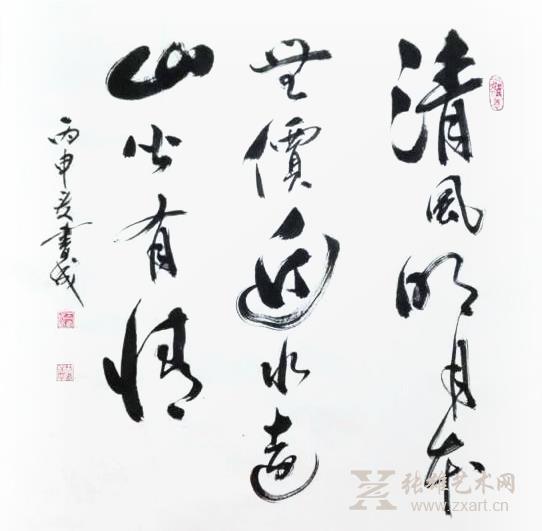 清風明月本
無價近水遠
山皆有情
丙申書成
张雄艺术网
www.zxart.cn